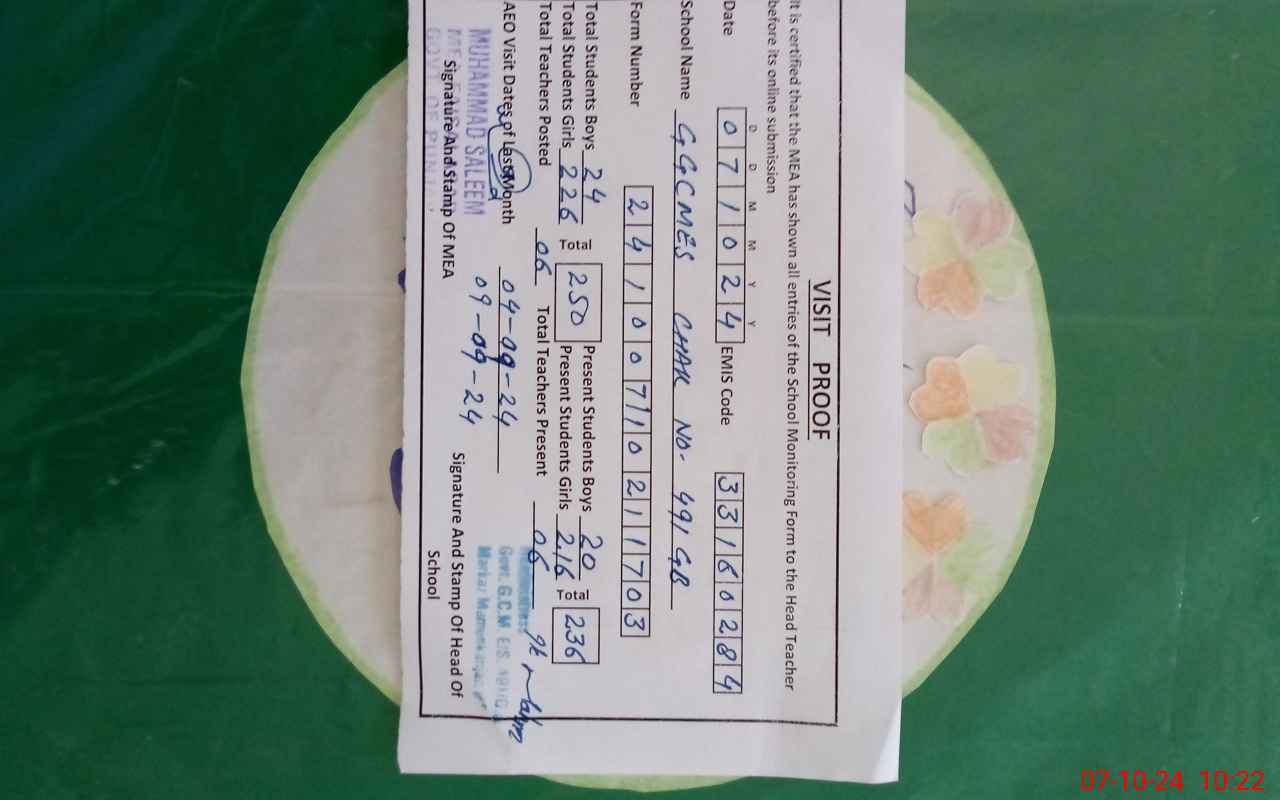 VISIT PROOF
It is certified that the MEA has shown all entries of the School Monitoring Form to the Head Teacher
before its online submission
D D M M Y Y
Date 0 7 1 0 2 4 EMIS Code 3 3 1 6 0 2 8 4
School Name GGCMES CHAK NO- 491 GB
Form Number 2 4 1 0 0 7 1 1 0 2 1 1 7 0 3
Total Students Boys 24 Present Students Boys 20
Total 250 Total 236
Total Students Girls 226 Present Students Girls 216
Total Teachers Posted 06 Total Teachers Present 06
AEO Visit Dates of Last Month 04-09-24
09-09-24
MUHAMMAD SALEEM
Govt. G.C.M. E/S.
Markaz
GOVT OF PUNJAB
Signature And Stamp Of MEA
Signature And Stamp Of Head Of
School
07-10-24 10:22